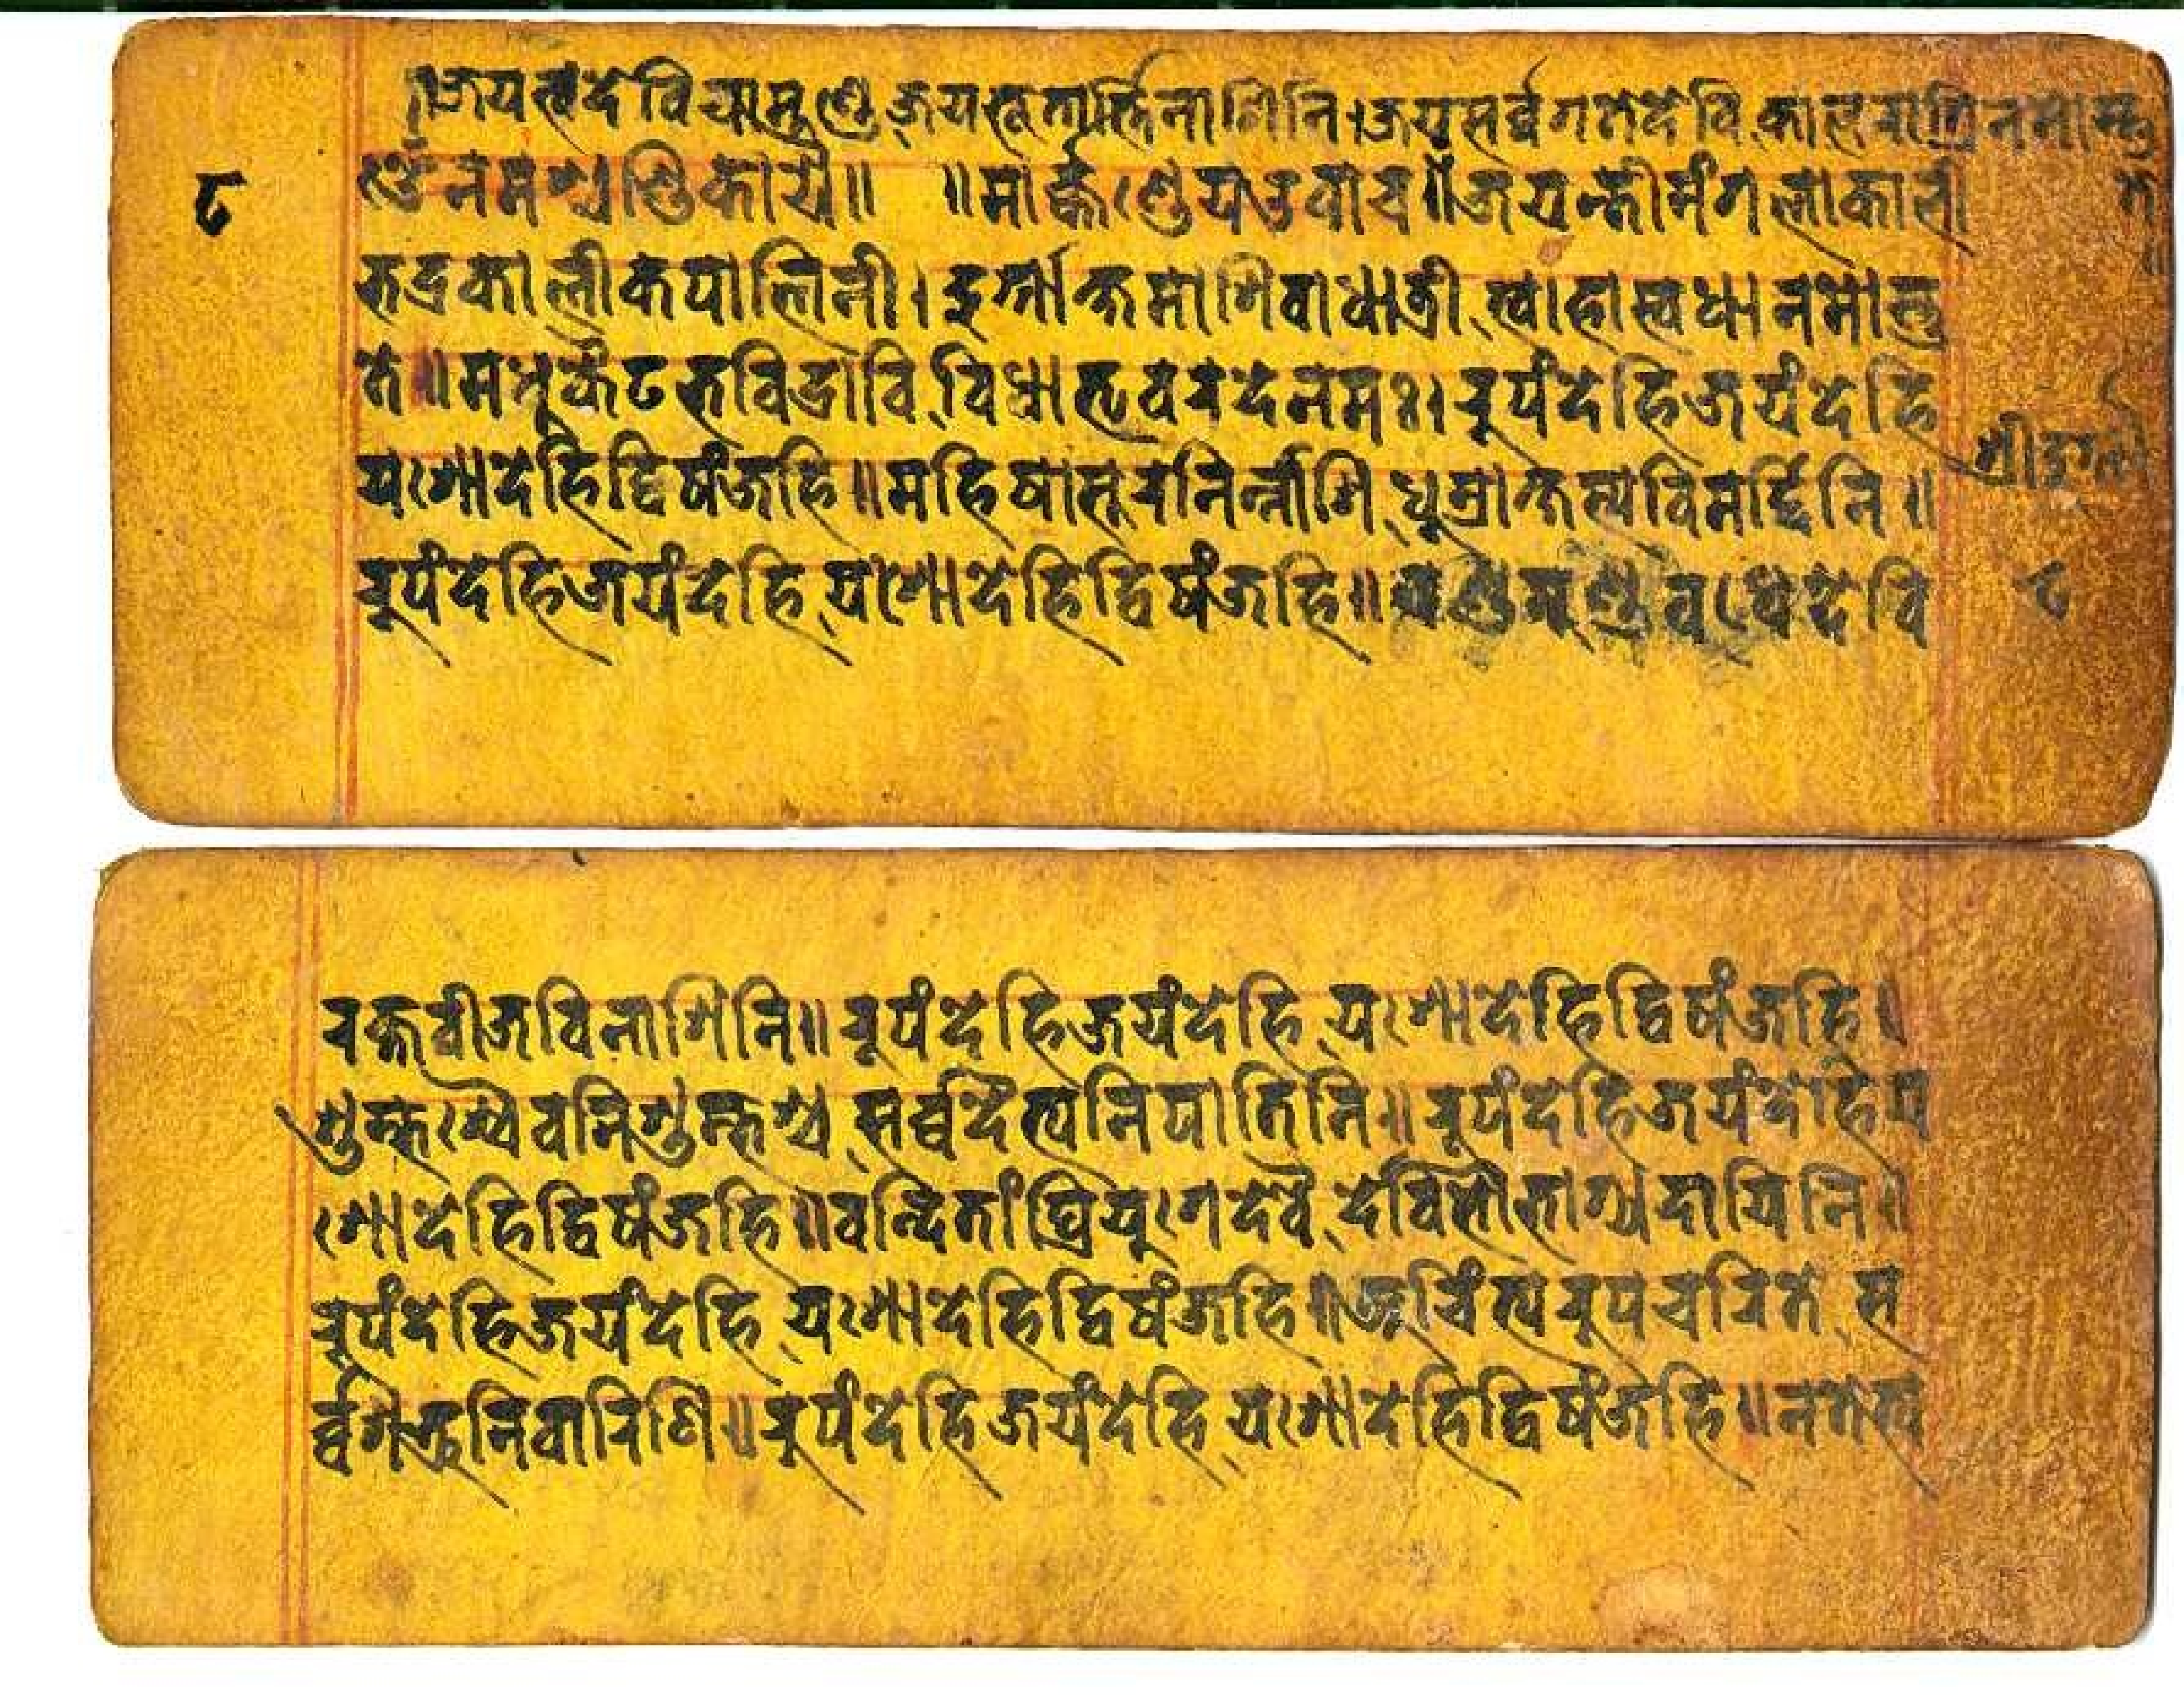 जयत्वदेविचामुण्डेजयभूतार्त्तिनाशिनि।जयसर्व्वगतेदेविकालरात्रिनमोस्तु
ते॥
८
ॐनमश्चण्डिकायै॥ ॥मार्क्कण्डेयउवाच॥जयन्तीमंगलाकाली
भद्रकालीकपालिनी।दुर्गाक्षमाशिवाधात्रीस्वाहास्वधानमोस्तु
ते॥मधुकैटभविद्राविविधातृवरदेनमः।रूपंदेहिजयंदेहि
श्रीदुर्गा
यशोदेहिद्विषंजहि॥महिषासूरनिर्न्नाशिधूम्राक्षस्यविमर्द्दिनि॥
रूपंदेहिजयंदेहियशोदेहिद्विषंजहि॥चण्डमुण्डवधेदेवि
८
रक्तबीजविनाशिनि॥रूपंदेहिजयंदेहियशोदेहिद्विषंजहि॥
शुम्भश्चैवनिशुम्भश्चसर्व्वदैत्यनिपातिनि॥रूपंदेहिजयंदेहिय
शोदेहिद्विषंजहि॥वन्दितांघ्रियूगेदेवैदेविसौभाग्यदायिनि॥
रूपंदेहिजयंदेहियशोदेहिद्विषंजहि॥अचिंत्यरूपचरितेस
र्व्वशत्रुनिवारिणि॥रूपंदेहिजयंदेहियशोदेहिद्विषंजहि॥नतेभ्य